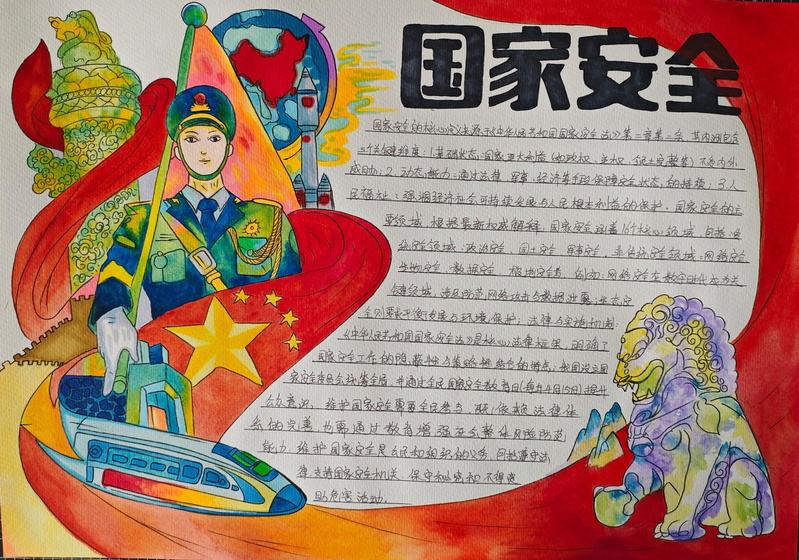 国家安全
国家安全的核心定义来源于《中华人民共和国国家安全法》第二章第二条,其内涵包含
三个关键维度:1.基础状态:国家重大利益(如政权、主权、领土完整等)不受内外
威胁;2.动态能力:通过法律、军事、经济等手段保障安全状态的持续;3.人
民福祉:强调经济社会可持续发展与人民根本利益的保护。国家安全的主
要领域,根据最新权威解释,国家安全涵盖16个核心领域,包括:传
统安全领域:政治安全、国土安全、军事安全,非传统安全领域:网络安全
生物安全、数据安全、极地安全等,例如:网络安全在数字时代尤为关
键领域,涉及防范网络攻击与数据泄露;生态安
全则要求平衡发展与环境保护;法律与实施机制
《中华人民共和国国家安全法》是核心法律依据,明确了
国家安全工作的
国家安全委员会统筹全局,并通过全民国家安全教育日(每年4月15日)提升
公众意识,维护国家安全需要全民参与,既依赖法律体
系的完善,也需通过教育增强安全整体风险防范
能力,维护国家安全是公民和组织的义务,包括遵守法
律、支持国家安全机关、保守秘密和不得资
助危害活动.